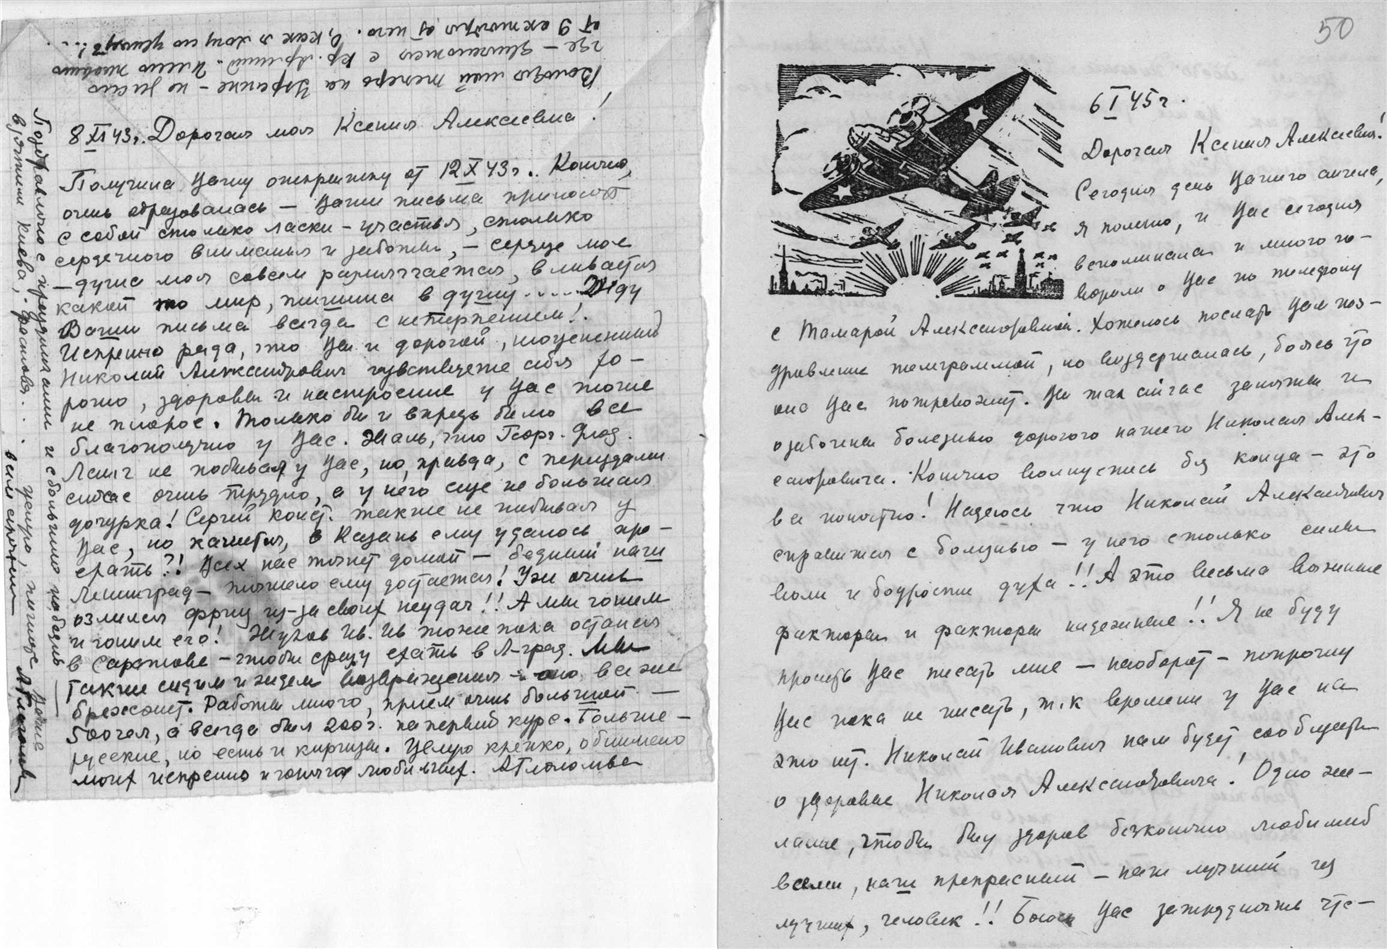 Володя мой теперь на Украине - но не знаю
где - движется с кр. армией. Имею письмо
от 9 октября от него. О, как я хочу его увидеть!...
8 XI 43г. Дорогая моя Ксения Алексеевна!
Получила Вашу открытку от 12 X 43г.. Конечно,
очень обрадовалась - Ваши письма приносят
с собой столько ласки - участья, столько
сердечного вниманья и заботы, - сердце мое
- душа моя совсем размягчается, вливается
какой то мир, тишина в душу.... Жду
Ваши письма всегда с нетерпением!.
Искренно рада, что Вы и дорогой, многоценный
Николай Александрович чувствуете себя хо-
рошо, здоровы и настроение у Вас тоже
не плохое. Только бы и впредь было все
благополучно у Вас. Жаль, что Георг. Флад.
Ланг не побывал у Вас, но, правда, с переездами
сейчас очень трудно, а у него еще не большая
дочурка! Сергей Конст. также не побывал у
Вас, но кажется, в Казань ему удалось про-
ехать?! Всех нас тянет домой - бедный наш
Ленинград - тяжело ему достается! Уж очень
озлился фриц из-за своих неудач!! А мы гоним
и гоним его! Жуков Ив. Ив тоже пока остался
в Саратове - чтобы сразу ехать в Л-град. Мы
также сидим и ждем возвращения - оно все же
брезжит. Работы много, прием очень большой -
500 чел, а всегда был 200ч. на первый курс. Больше -
русские, но есть и киргизы. Целую крепко, обнимаю
моих искренно и горячо любимых.
Поздравляю с праздниками и с большими победами -
взятием Киева, Фастова...
Целую, пишите
Ваша
всем сердцем
50
6 I 45г.
Дорогая Ксения Алексеевна!
Сегодня день Вашего ангела,
я помню, и Вас сегодня
вспоминала и много го-
ворили о Вас по телефону
с Тамарой Александровной. Хотелось послать Вам поз-
дравление телеграммой, но воздержалась, боясь что
оно Вас потревожит. Вы так сейчас заняты и
озабочены болезнью дорогого нашего Николая Алек-
сандровича. Конечно волнуетесь без конца - это
все понятно! Надеюсь что Николай Александрович
справится с болезнью - у него столько силы
воли и бодрости духа!! А это весьма важные
факторы и факторы надежные!! Я не буду
просить Вас писать мне - наоборот - попрошу
Вас пока не писать, т.к времени у Вас на
это нет. Николай Иванович нам будет сообщать
о здоровье Николая Александровича! Одно же-
лание, чтобы был здоров бесконечно любимый
всеми, наш прекрасный - наш лучший из
лучших, человек!! Боюсь Вас затруднять чте-